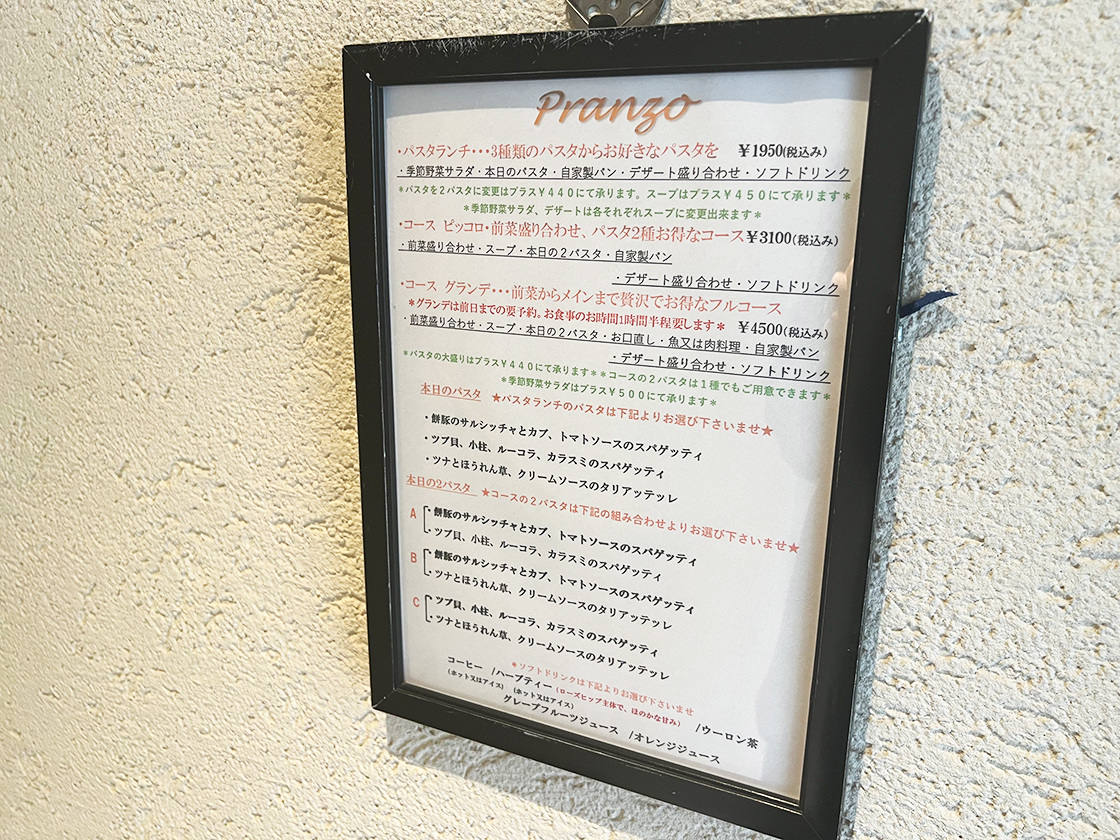 Pranzo
・パスタランチ・・・3種類のパスタからお好きなパスタを ￥1950(税込み)
・季節野菜サラダ・本日のパスタ・自家製パン・デザート盛り合わせ・ソフトドリンク
＊パスタを２パスタに変更はプラス￥４４０にて承ります。スープはプラス￥４５０にて承ります＊
＊季節野菜サラダ、デザートは各それぞれスープに変更出来ます＊
・コース ピッコロ・前菜盛り合わせ、パスタ2種お得なコース￥3100(税込み)
・前菜盛り合わせ・スープ・本日の２パスタ・自家製パン
・デザート盛り合わせ・ソフトドリンク
・コース グランデ・・・前菜からメインまで贅沢でお得なフルコース
＊グランデは前日までの要予約。お食事のお時間1時間半程要します＊ ￥4500(税込み)
・前菜盛り合わせ・スープ・本日の２パスタ・お口直し・魚又は肉料理・自家製パン
・デザート盛り合わせ・ソフトドリンク
＊パスタの大盛りはプラス￥４４０にて承ります＊＊コースの２パスタは１種でもご用意できます＊
＊季節野菜サラダはプラス￥５００にて承ります＊
本日のパスタ ★パスタランチのパスタは下記よりお選び下さいませ★
・餅豚のサルシッチャとカブ、トマトソースのスパゲッティ
・ツブ貝、小柱、ルーコラ、カラスミのスパゲッティ
・ツナとほうれん草、クリームソースのタリアッテッレ
本日の2パスタ ★コースの２パスタは下記の組み合わせよりお選び下さいませ★
A ・餅豚のサルシッチャとカブ、トマトソースのスパゲッティ
・ツブ貝、小柱、ルーコラ、カラスミのスパゲッティ
B ・餅豚のサルシッチャとカブ、トマトソースのスパゲッティ
・ツナとほうれん草、クリームソースのタリアッテッレ
C ・ツブ貝、小柱、ルーコラ、カラスミのスパゲッティ
・ツナとほうれん草、クリームソースのタリアッテッレ
＊ソフトドリンクは下記よりお選び下さいませ
コーヒー /ハーブティー(ローズヒップ主体で、ほのかな甘み) /ウーロン茶
(ホット又はアイス) (ホット又はアイス)
グレープフルーツジュース /オレンジジュース